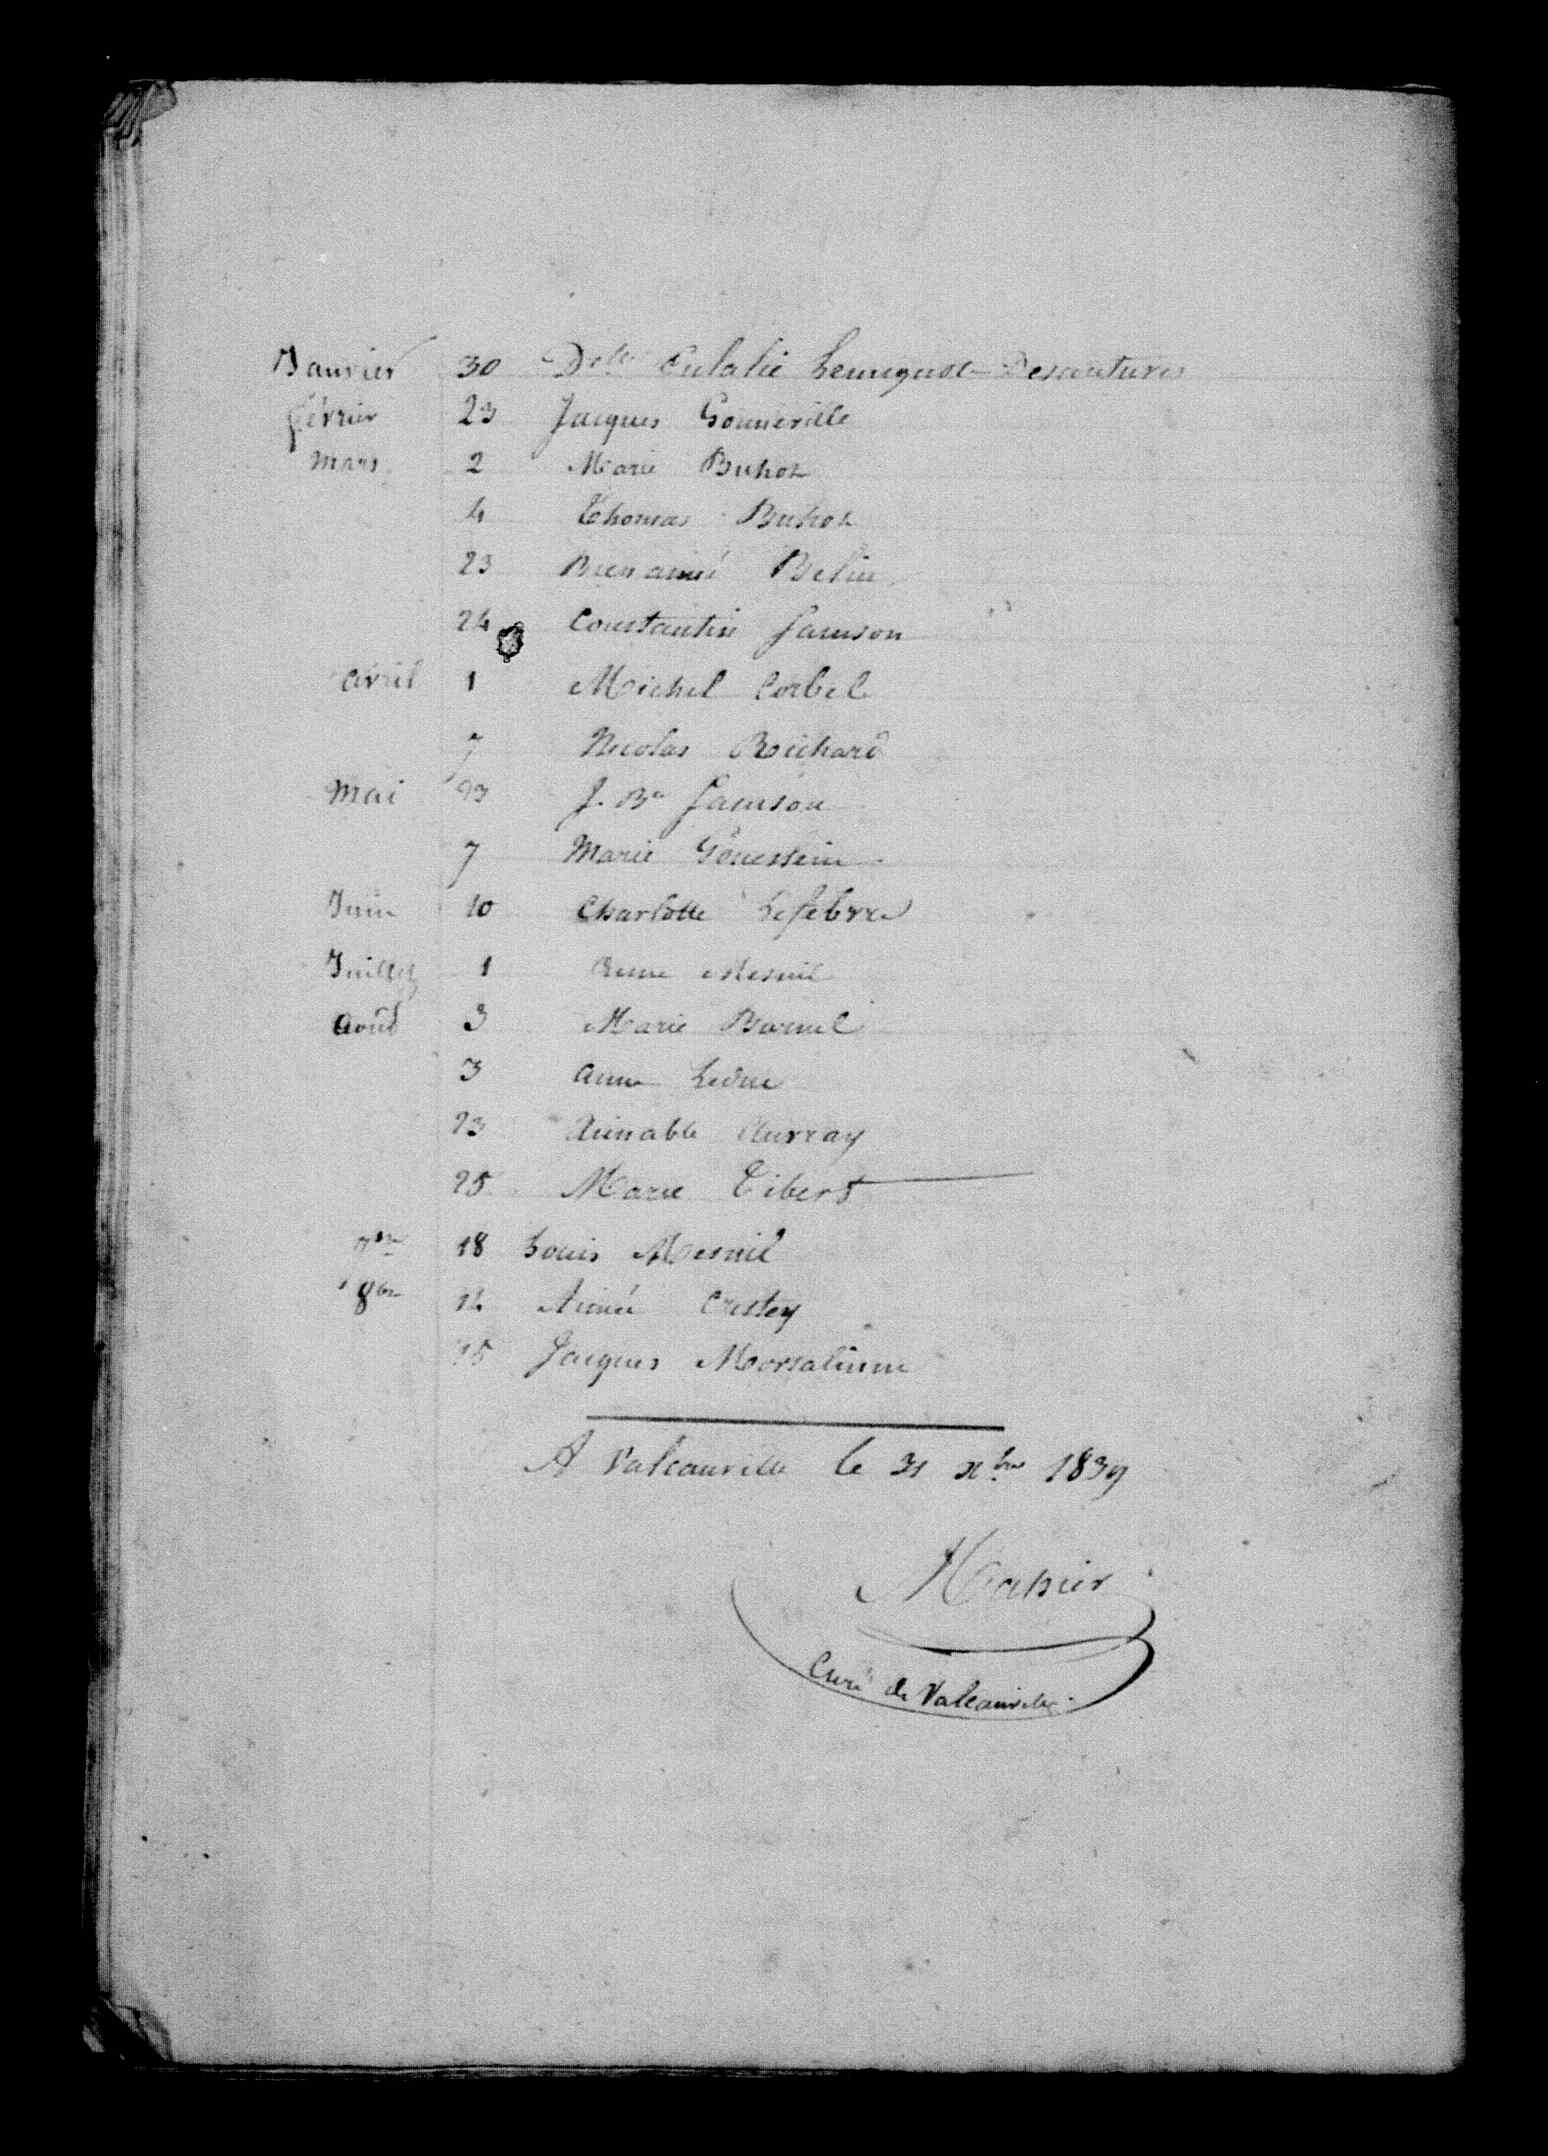 Janvier 30 Delle Eulalie Desaintures
février 23 Jacques Gonneville
mars 2 Marie Buhot
4 Thomas Buhot
23 Bienaimé Belin
24 Constantin Samson
avril 1 Michel Corbel
7 Nicolas Rouchard
mai 23 J. Bte Samson
7 Marie Gouesslin
Juin 10 Charlotte Lefebvre
Juillet 1 Anne Mesnil
août 3 Marie Burnel
3 anne Leduc
23 Aimable Auvray
25 Marie Tibert
7bre 18 Louis Mesnil
8bre 14 Aimée Crestey
25 Jacques Morsalinne
A Valcanville le 31 xbre 1839
Mahier
Curé de Valcanville